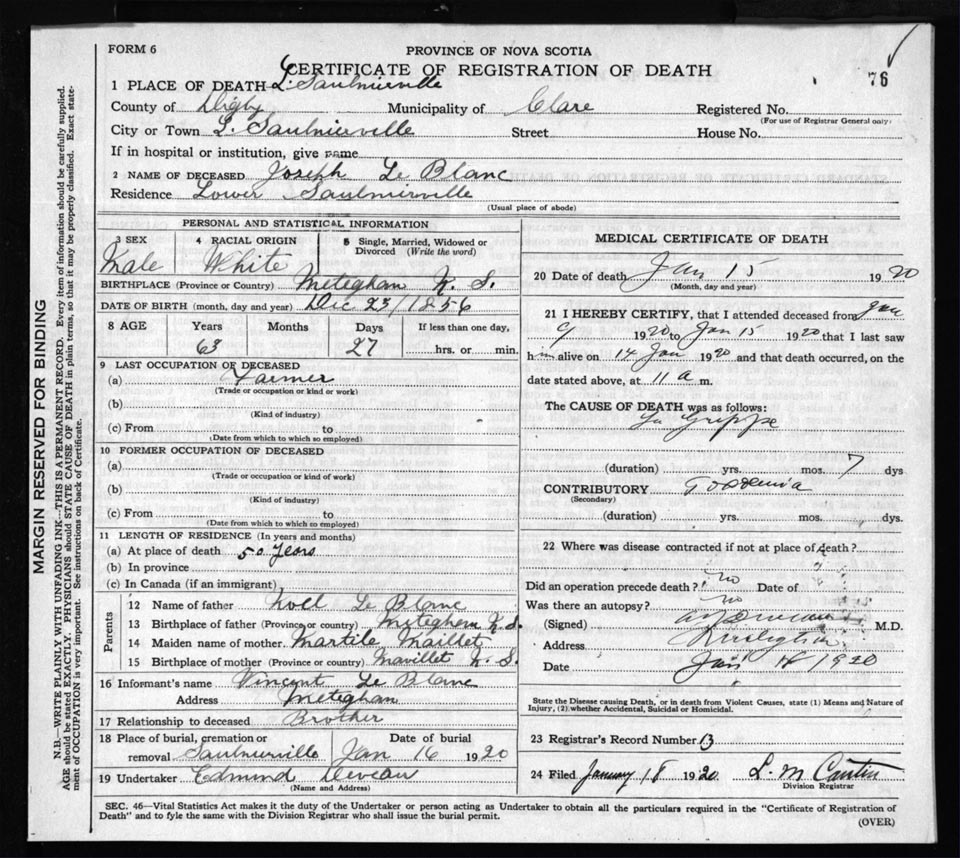 FORM 6
PROVINCE OF NOVA SCOTIA
CERTIFICATE OF REGISTRATION OF DEATH
76
1 PLACE OF DEATH L. Saulnierville
County of Digby Municipality of Clare Registered No.
(For use of Registrar General only)
City or Town L. Saulnierville Street House No.
If in hospital or institution, give name
2 NAME OF DECEASED Joseph Le Blanc
Residence Lower Saulnierville
(Usual place of abode)
PERSONAL AND STATISTICAL INFORMATION
3 SEX 4 RACIAL ORIGIN 5 Single, Married, Widowed or Divorced (Write the word)
Male White
BIRTHPLACE (Province or Country) Meteghan N. S.
DATE OF BIRTH (month, day and year) Dec 23/1856
8 AGE Years Months Days If less than one day,
63 27 hrs. or min.
9 LAST OCCUPATION OF DECEASED
(a) Farmer
(Trade or occupation or kind or work)
(b)
(Kind of industry)
(c) From to
(Date from which to which so employed)
10 FORMER OCCUPATION OF DECEASED
(a)
(Trade or occupation or kind of work)
(b)
(Kind of industry)
(c) From to
(Date from which to which so employed)
11 LENGTH OF RESIDENCE (In years and months)
(a) At place of death 50 Years
(b) In province
(c) In Canada (if an immigrant)
Parents
12 Name of father Noel Le Blanc
13 Birthplace of father (Province or country) Meteghan N.S.
14 Maiden name of mother Martile Maillet
15 Birthplace of mother (Province or country) Mavillet N. S.
16 Informant's name Vincent Le Blanc
Address Meteghan
17 Relationship to deceased Brother
18 Place of burial, cremation or removal Saulnierville Date of burial Jan 16 1920
19 Undertaker Edmund Deveau
(Name and Address)
MEDICAL CERTIFICATE OF DEATH
20 Date of death Jan 15 1920
(Month, day and year)
21 I HEREBY CERTIFY, that I attended deceased from Jan
9 1920 to Jan 15 1920 that I last saw
him alive on 14 Jan 1920 and that death occurred, on the
date stated above, at 11 a m.
The CAUSE OF DEATH was as follows:
La Grippe
(duration) yrs. mos. 7 dys
CONTRIBUTORY Toxemia
(Secondary)
(duration) yrs. mos. dys.
22 Where was disease contracted if not at place of d ?
Did an operation precede death? no Date of
Was there an autopsy? no
(Signed) M.D.
Address
Date Jan 1920
State the Disease causing Death, or in death from Violent Causes, state (1) Means and Nature of
Injury, (2) whether Accidental, Suicidal or Homicidal.
23 Registrar's Record Number 13
24 Filed January 18 1920. L. M Cantin
Division Registrar
SEC. 46—Vital Statistics Act makes it the duty of the Undertaker or person acting as Undertaker to obtain all the particulars required in the "Certificate of Registration of
Death" and to fyle the same with the Division Registrar who shall issue the burial permit.
(OVER)
MARGIN RESERVED FOR BINDING
N.B.—WRITE PLAINLY WITH UNFADING INK—THIS IS A PERMANENT RECORD. Every item of information should be carefully supplied.
AGE should be stated EXACTLY. PHYSICIANS should STATE CAUSE OF DEATH in plain terms, so that it may be properly classified. Exact statement of OCCUPATION is very important. See instructions on back of Certificate.